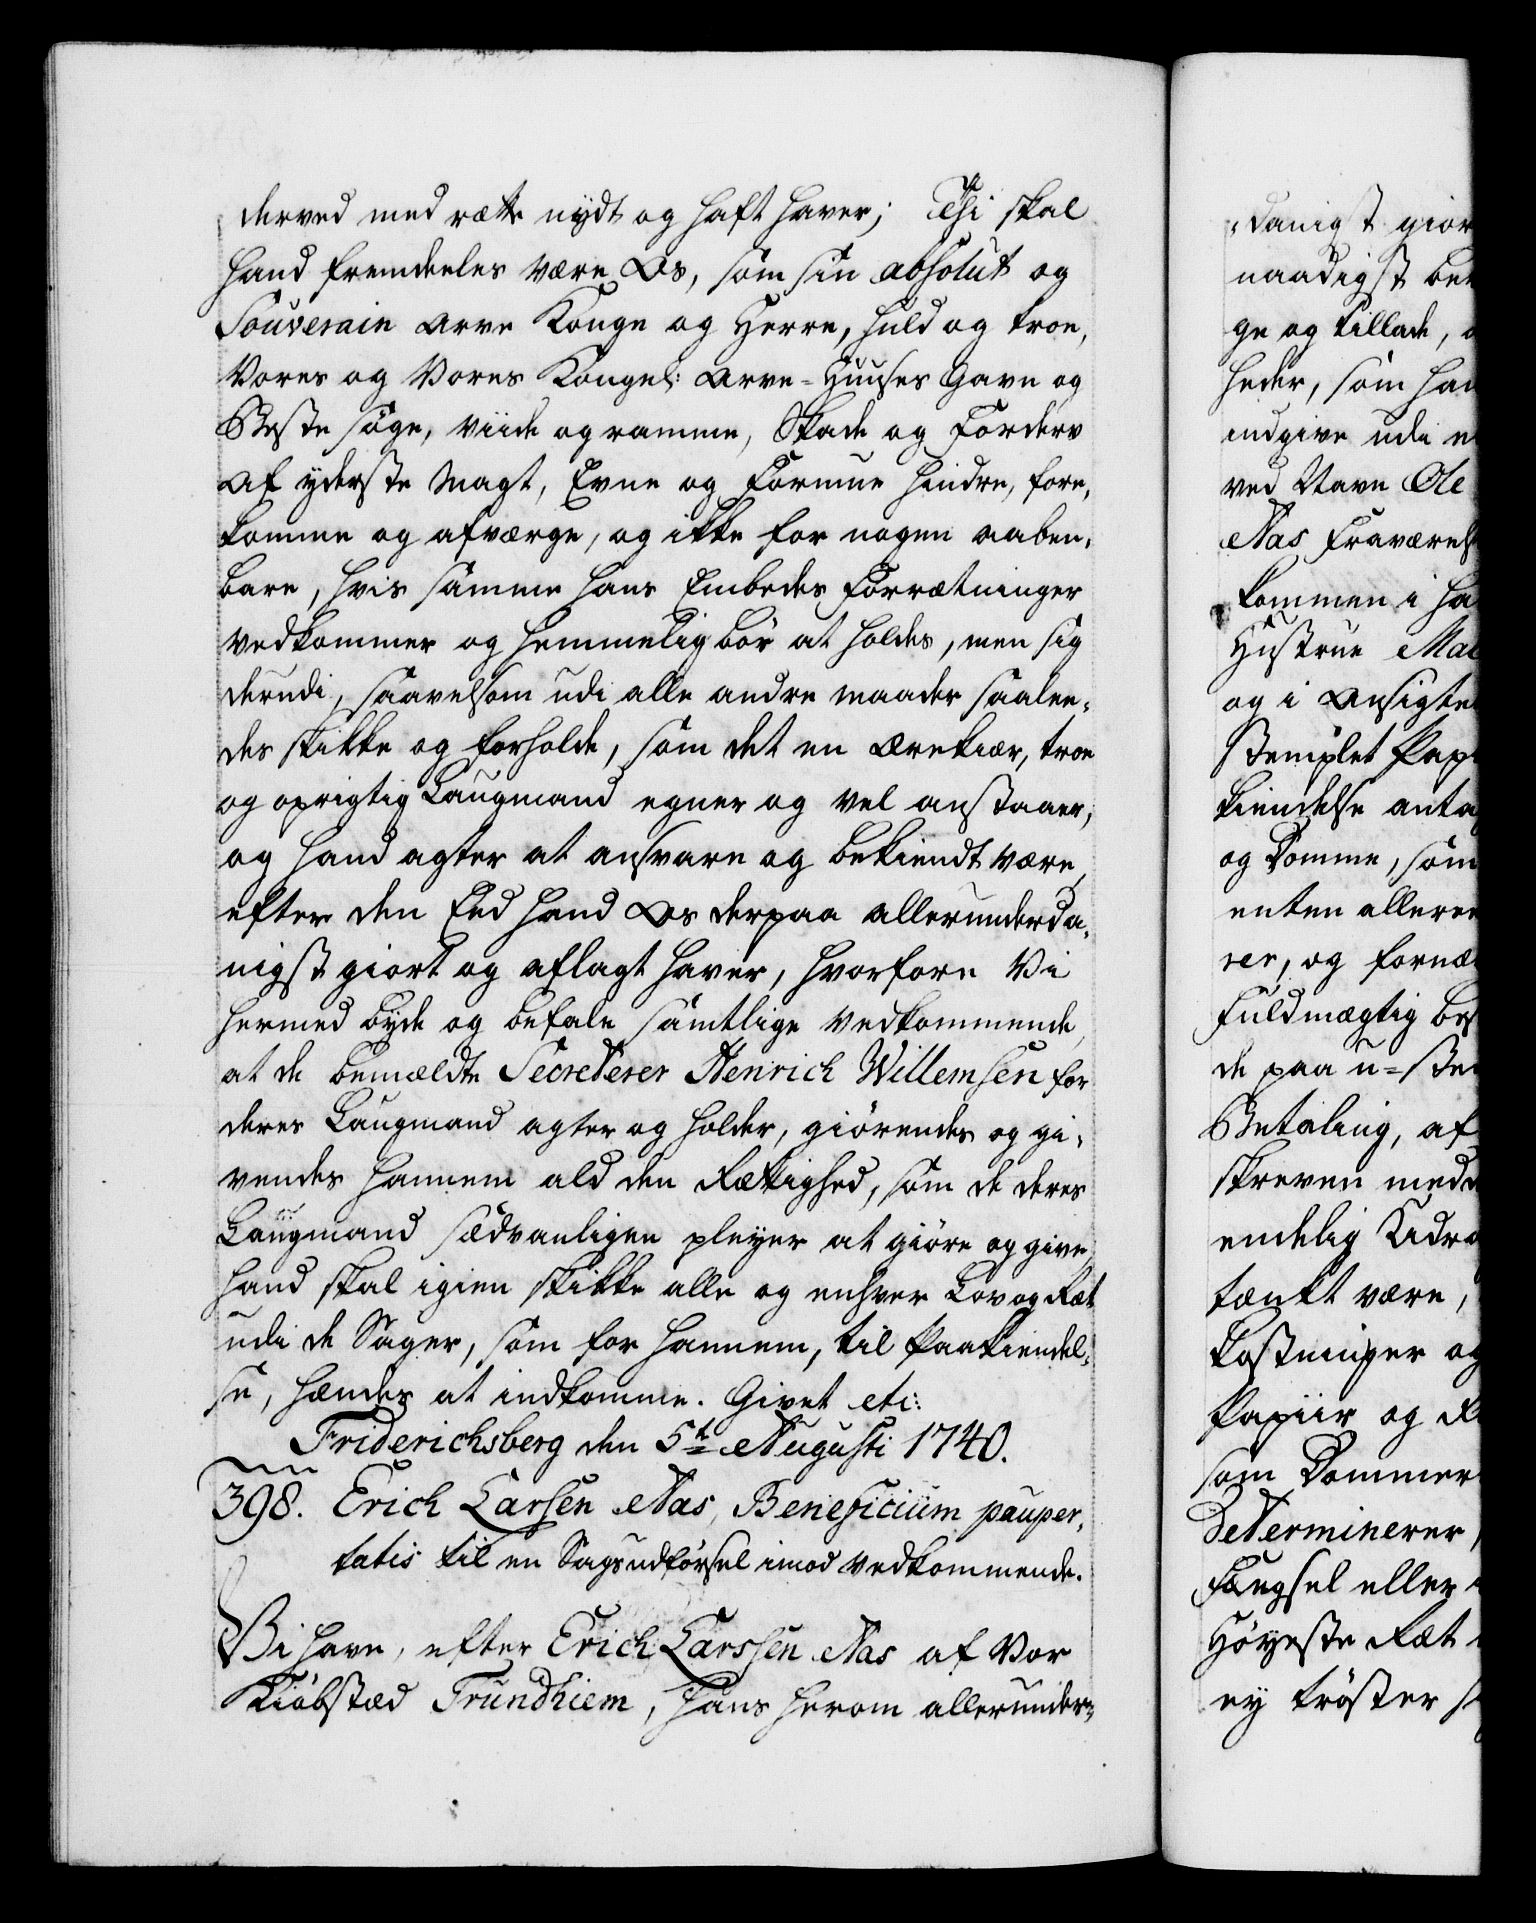 derved med rætte nydt og haft haver; Thi skal
hand fremdeeles være Os, som sin absolut og
Souverain Arve Konge og Herre, huld og troe,
Vores og Vores Kongel: Arve-Huuses Gavn og
Beste søge, viide og ramme, Skade og Forderv
af yderste Magt, Evne og Formue hindre, fore,
komme og afværge, og ikke for nogen aaben,
bare, hvis samme hans Embedes Forrætninger
vedkommer og hemmelig bør at holdes, men sig
derudi, saavelsom udi alle andre maader saalee,
des skikke og forholde, som det en Ærekiær, troe
og oprigtig Laugmand egner og vel anstaaer,
og hand agter at ansvare og bekiendt være,
efter den Eed hand Os derpaa allerunderda,
nigst giort og aflagt haver, hvorfore Vi
hermed byde og befale samtlige vedkommende,
at de bemældte Secreterer Henrich Willemsen for
deres Laugmand agter og holder, giørendes og gi,
vendes hannem ald den Rættighed, som de deres
Laugmand sædvanligen pleyer at giøre og give,
hand skal igien skikke alle og enhver Lov og Ræt
udi de Sager, som for hannem, til Paakiendel,
se, hændes at indkomme. Givet etc:
Friderichsberg den 5te Augusti 1740.
398. Erich Larsen Aas, Beneficium pauper,
tatis til en Sags udførsel imod vedkommende.
Vi have, efter Erich Larssen Aas af Vor
Kiøbstæd Trundhiem, hans herom allerunder=
,danigst gior
naadigst be
ge og tillade,
heder, som han
indgive udi
ved Navn Ole
Aas fraværels
kommen i ha
Hustrue Ma
og i Ansigte
stemplet Pap
kiendelse anta
og Domme, som
enten allere
rer, og fornæ
Fuldmægtig bes
de paa u-ste
Betaling, af
skreven medd
endelig Uddra
tænkt være,
kostninger og
Papiir og
som Dommer
determinerer,
Fængsel eller
Høyeste Ræt
ey trøster